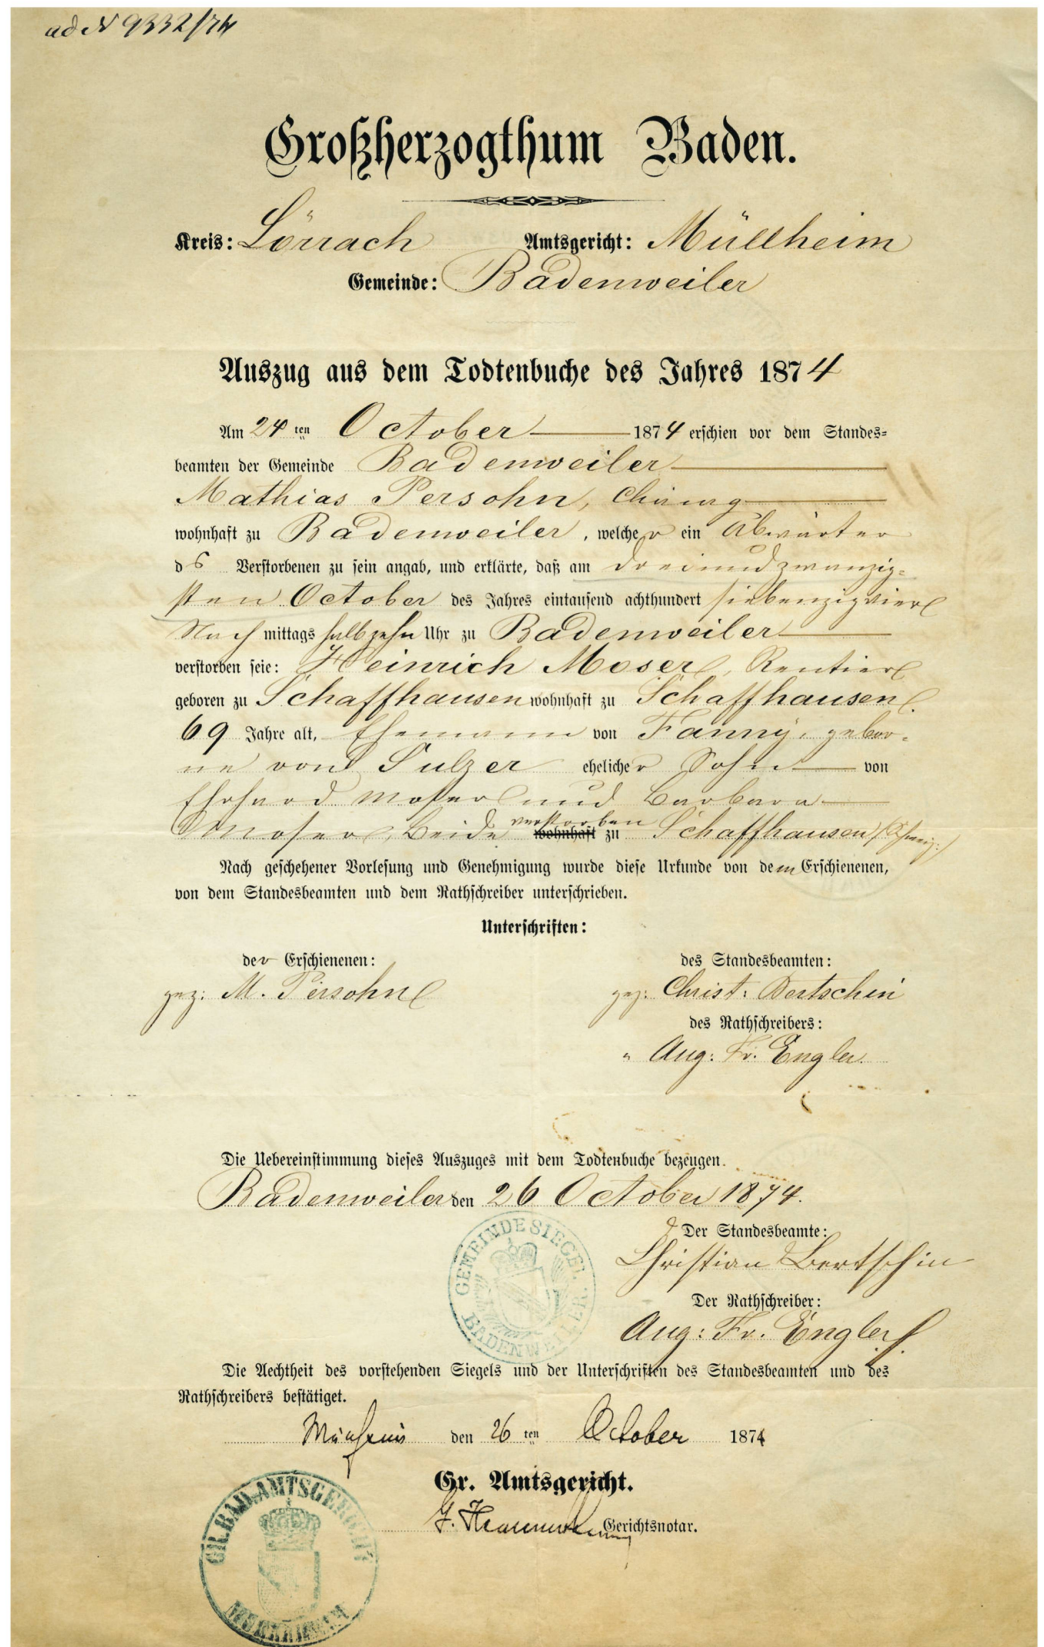 ad N 9332/74
Großherzogthum Baden.
Kreis: Lörrach Amtsgericht: Müllheim
Gemeinde: Badenweiler
Auszug aus dem Todtenbuche des Jahres 1874
Am 24 ten October 1874 erschien vor dem Standes-
beamten der Gemeinde Badenweiler
Mathias Persohn, Chirurg
wohnhaft zu Badenweiler, welcher ein Abwärter
ds Verstorbenen zu sein angab, und erklärte, daß am dreiundzwanzig-
sten October des Jahres eintausend achthundert siebenzigvier
Nachmittags halbzehn Uhr zu Badenweiler
verstorben seie: Heinrich Moser, Rentier
geboren zu Schaffhausen wohnhaft zu Schaffhausen,
69 Jahre alt, Ehemann von Fanny, gebor-
ne von Sulzer ehelicher Sohn von
Ehrhard Moser und Barbara
Moser, beide verstorben wohnhaft zu Schaffhausen /Schweiz:/
Nach geschehener Vorlesung und Genehmigung wurde diese Urkunde von dem Erschienenen,
von dem Standesbeamten und dem Rathschreiber unterschrieben.
Unterschriften:
der Erschienenen: des Standesbeamten:
gez: M. Persohn gez: Christ: Bertschin
des Rathschreibers:
" Aug: Fr. Engler
Die Uebereinstimmung dieses Auszuges mit dem Todtenbuche bezeugen.
Badenweiler den 26 October 1874.
GEMEINDE SIEGEL BADENWEILER
Der Standesbeamte:
Christian Bertschin
Der Rathschreiber:
Aug: Fr. Engler
Die Aechtheit des vorstehenden Siegels und der Unterschriften des Standesbeamten und des
Rathschreibers bestätiget.
den 26 ten October 1874
Gr. Amtsgericht.
Gerichtsnotar.
GR. BAD. AMTSGERICHT
MÜLLHEIM